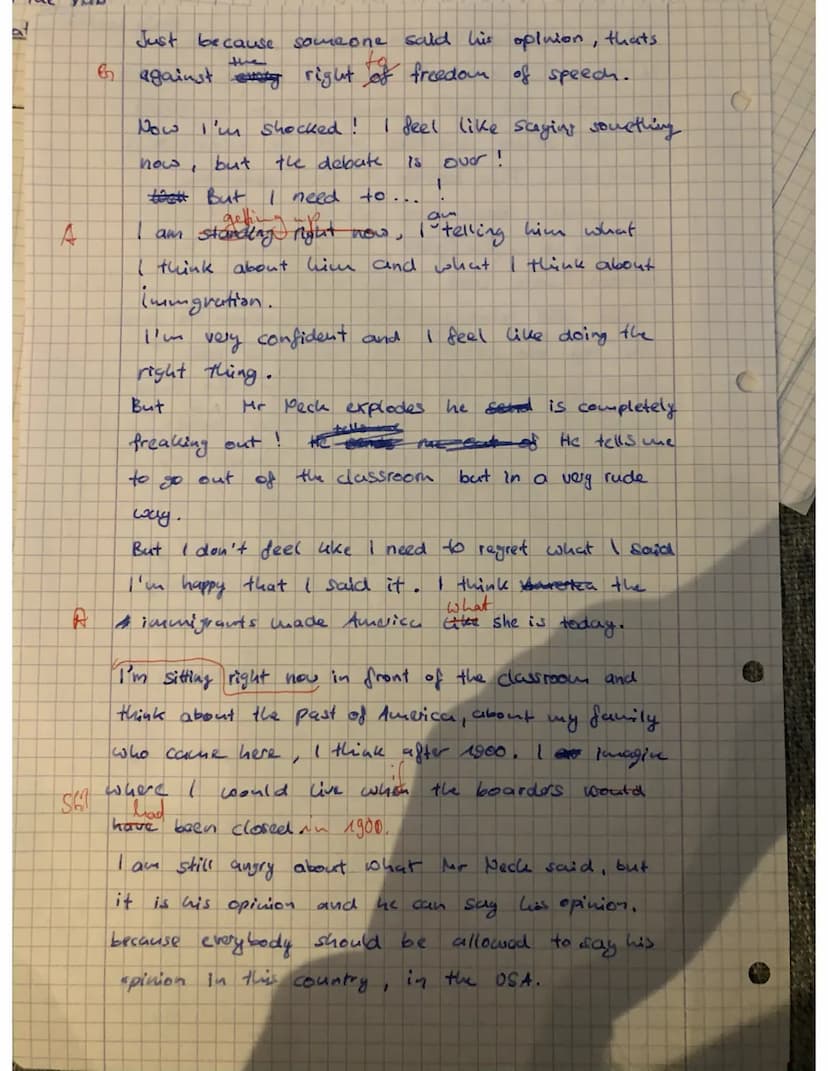 Just because someone said his opinion, thats
against the right to freedom of speech.
Now I'm shocked! I feel like saying something
now, but the debate is over!
But I need to...!
A
getting up
I am standing right now, I am telling him what
I think about him and what I think about
immigration.
I'm very confident and I feel like doing the
right thing.
But Mr Neck explodes he is completely
freaking out! He tells me
to go out of the classroom but in a very rude
way.
But I don't feel like I need to regret what I said
I'm happy that I said it. I think the
what
A immigrants made America like she is today.
I'm sitting right now in front of the classroom and
think about the past of America, about my family
who came here, I think after 1900. I imagine
if
where I would live when the boarders would
had
have been closed in 1900.
I am still angry about what Mr Neck said, but
it is his opinion and he can say his opinion,
because everybody should be allowed to say his
opinion in this country, in the USA.